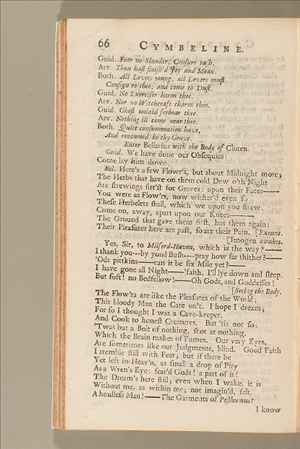 66 CYMBELINE.
Guid. Fear no Slander, Censure rash.
Arv. Thou hast finish'd Joy and Moan.
Both. All Lovers young, all Lovers must
Consign to thee, and come to Dust.
Guid. No Exorciser harm thee.
Arv. Nor no Witchcraft charm thee.
Guid. Ghost unlaid forbear thee.
Arv. Nothing ill come near thee.
Both. Quiet consummation have,
And renowned be thy Grave.
Enter Bellarius with the Body of Cloten.
Guid. We have done our Obsequies:
Come lay him down.
Bel. Here's a few Flow'rs, but about Midnight more;
The Herbs that have on them cold Dew o'th'Night
Are strewings fitt'st for Graves: upon their Faces——
You were as Flow'rs, now wither'd even so
These Herbelets shall, which we upon you strew.
Come on, away, apart upon our Knees———
The Ground that gave them first, has them again:
Their Pleasures here are past, so are their Pain. [Exeunt.
[Imogen awakes.
Yes, Sir, to Milford-Haven, which is the way?
I thank you---by yond Bush----pray how far thither?——
'Ods pittkins——can it be six Mile yet?——
I have gone all Night——'faith, I'll lye down and sleep.
But soft! no Bedfellow!——Oh Gods, and Goddesses!
[Seeing the Body.
The Flow'rs are like the Pleasures of the World;
This bloody Man the Care on't. I hope I dream;
For so I thought I was a Cave-keeper,
And Cook to honest Creatures. But 'tis not so:
'Twas but a Bolt of nothing, shot at nothing,
Which the Brain makes of Fumes. Our very Eyes,
Are sometimes like our Judgments, blind. Good Faith
I tremble still with Fear; but if there be
Yet left in Heav'n, as small a drop of Pity
As a Wren's Eye: fear'd Gods! a part of it!
The Dream's here still; even when I wake, it is
Without me, as within me; not imagin'd, felt.
A headless Man!——The Garments of Posthumus!
I know